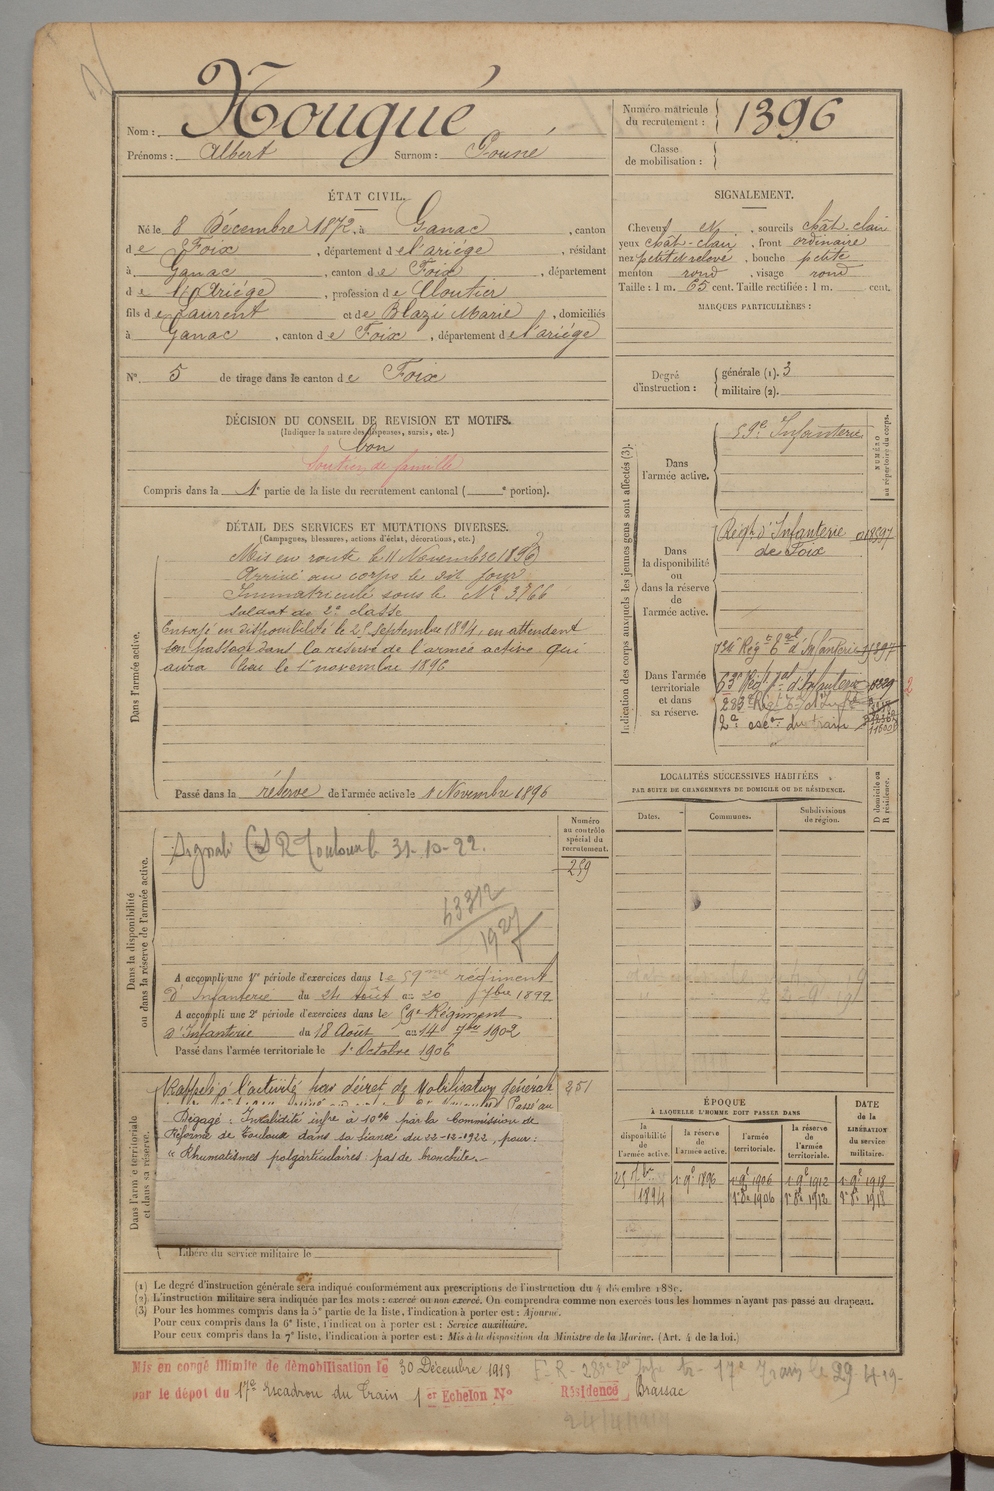 Nom : Nougué
Prénoms : Albert Surnom : Gouné
Numéro matricule du recrutement : 1396
Classe de mobilisation :
ÉTAT CIVIL.
Né le 8 Décembre 1872, à Ganac, canton
de Foix, département de l'ariége, résidant
à Ganac, canton de Foix, département
de l'Ariége, profession de Cloutier
fils de Laurent et de Blazi Marie, domiciliés
à Ganac, canton de Foix, département de l'ariége
N° 5 de tirage dans le canton de Foix
SIGNALEMENT.
Cheveux et, sourcils chât-clair
yeux chât-clair, front ordinaire
nez petit et relevé, bouche petite
menton rond, visage rond
Taille : 1 m. 65 cent. Taille rectifiée : 1 m. cent.
MARQUES PARTICULIÈRES :
Degré d'instruction : générale (1). 3
militaire (2).
DÉCISION DU CONSEIL DE REVISION ET MOTIFS.
(Indiquer la nature des dispenses, sursis, etc.)
bon
Soutien de famille
Compris dans la 1e partie de la liste du recrutement cantonal ( e portion).
DÉTAIL DES SERVICES ET MUTATIONS DIVERSES.
(Campagnes, blessures, actions d'éclat, décorations, etc.)
Dans l'armée active.
Mis en route le 11 Novembre 1893
Arrivé au corps le dit jour
Immatriculé sous le N° 3766
soldat de 2e classe
Envoyé en disponibilité le 25 septembre 1894, en attendent
son passage dans la reserve de l'armée active qui
aura lieu le 1er novembre 1896
Passé dans la réserve de l'armée active le 1 Novembre 1896
Indication des corps auxquels les jeunes gens sont affectés (3).
NUMÉRO au répertoire du corps.
Dans l'armée active.
59e Infanterie
Dans la disponibilité ou dans la réserve de l'armée active.
Régt d'Infanterie
de Foix
Dans l'armée territoriale et dans sa réserve.
134e Régt Tal d'Infanterie
63e Régt d'Infanterie
283e Régt Tal d'Infie
2e escon du train
2
LOCALITÉS SUCCESSIVES HABITÉES
PAR SUITE DE CHANGEMENTS DE DOMICILE OU DE RÉSIDENCE.
D domicile ou R résidence.
Dates. Communes. Subdivisions de région.
Dans la disponibilité ou dans la réserve de l'armée active.
Numéro au contrôle spécial du recrutement.
259
Signalé CSR Toulouse 31-10-22.
43312
1927
A accompli une 1re période d'exercices dans le 59me régiment
d'Infanterie du 24 Août au 20 7bre 1899
A accompli une 2e période d'exercices dans le 59e Régiment
d'Infanterie du 18 Août au 14 7bre 1902
Passé dans l'armée territoriale le 1er Octobre 1906
Dans l'armée territoriale et dans sa réserve.
Rappelé à l'activité par décret de Mobilisation générale
251
Passé au
Dégagé : Invalidité infre à 10% par la Commission de
Réforme de Toulouse dans sa séance du 22-12-1922, pour :
" Rhumatismes polyarticulaires : pas de bronchite.
Libéré du service militaire le
ÉPOQUE
À LAQUELLE L'HOMME DOIT PASSER DANS
DATE de la LIBÉRATION du service militaire.
la disponibilité de l'armée active. la réserve de l'armée active. l'armée territoriale. la réserve de l'armée territoriale.
25 7bre 1894 1er 9e 1896 1er 9e 1906 1er 9e 1912 1er 9e 1918
1er 8e 1906 1er 8e 1912 1er 8e 1918
(1) Le degré d'instruction générale sera indiqué conformément aux prescriptions de l'instruction du 4 décembre 1889.
(2) L'instruction militaire sera indiquée par les mots : exercé ou non exercé. On comprendra comme non exercés tous les hommes n'ayant pas passé au drapeau.
(3) Pour les hommes compris dans la 5e partie de la liste, l'indication à porter est : Ajourné.
Pour ceux compris dans la 6e liste, l'indication à porter est : Service auxiliaire.
Pour ceux compris dans la 7e liste, l'indication à porter est : Mis à la disposition du Ministre de la Marine. (Art. 4 de la loi.)
Mis en congé illimité de démobilisation le 30 Décembre 1918
par le dépôt du 17e Escadron du Train 1er Echelon N° Résidence Brassac
17e Train le 29-4-19-
24/4/1919